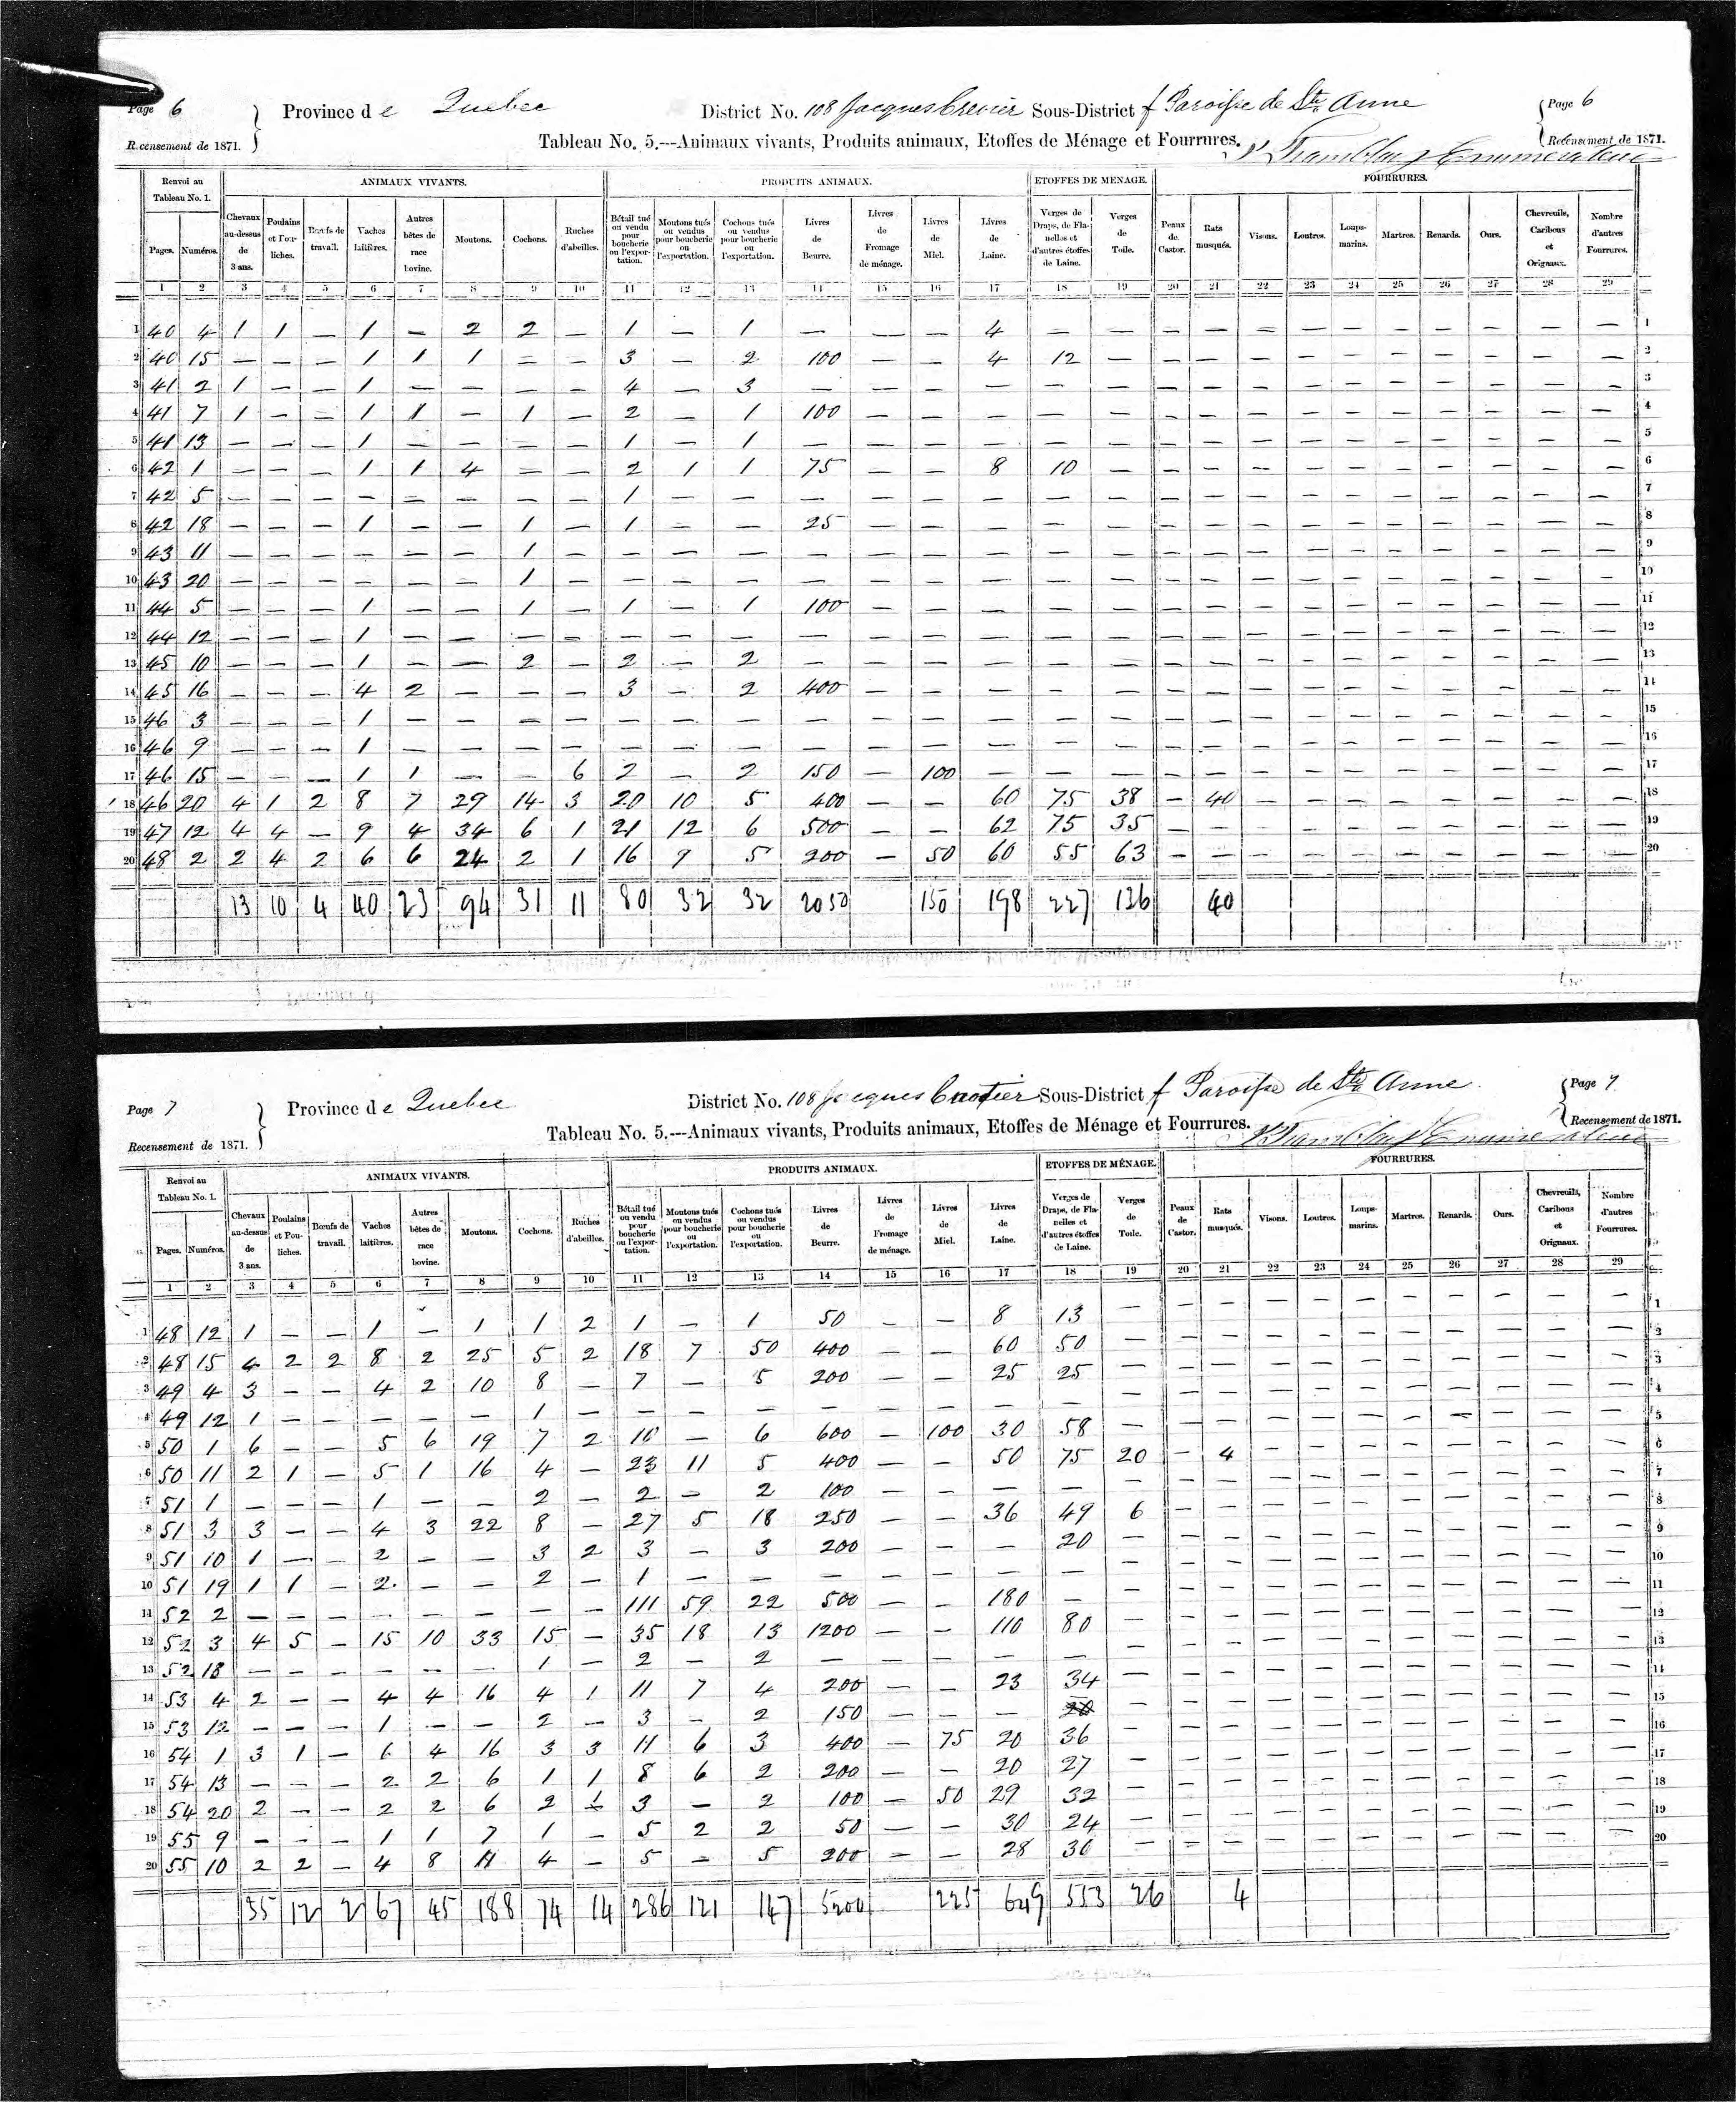 Page 6
Recensement de 1871.
Province de Quebec
District No. 108 Jacques Sous-District f Paroisse de Ste Anne
Page 6
Recensement de 1871.
Tableau No. 5.---Animaux vivants, Produits animaux, Etoffes de Ménage et Fourrures.
Renvoi au Tableau No. 1. ANIMAUX VIVANTS. PRODUITS ANIMAUX. ETOFFES DE MENAGE. FOURRURES.
Pages. Numéros. Chevaux au-dessus de 3 ans. Poulains et Pouliches. Bœufs de travail. Vaches laitières. Autres bêtes de race bovine. Moutons. Cochons. Ruches d'abeilles. Bétail tué ou vendu pour boucherie ou l'exportation. Moutons tués ou vendus pour boucherie ou l'exportation. Cochons tués ou vendus pour boucherie ou l'exportation. Livres de Beurre. Livres de Fromage de ménage. Livres de Miel. Livres de Laine. Verges de Draps, de Flanelles et d'autres étoffes de Laine. Verges de Toile. Peaux de Castor. Rats musqués. Visons. Loutres. Loups-marins. Martres. Renards. Ours. Chevreuils, Caribous et Orignaux. Nombre d'autres Fourrures.
1 2 3 4 5 6 7 8 9 10 11 12 13 14 15 16 17 18 19 20 21 22 23 24 25 26 27 28 29
1 40 4 1 1 — 1 — 2 2 — 1 — 1 — — — 4 — — — — — — — — — — — — 1
2 40 15 — — — 1 1 1 — — 3 — 2 100 — — 4 12 — — — — — — — — — — — 2
3 41 2 1 — — 1 — — — — 4 — 3 — — — — — — — — — — — — — — — — 3
4 41 7 1 — — 1 1 — 1 — 2 — 1 100 — — — — — — — — — — — — — — — 4
5 41 13 — — — 1 — — — — 1 — 1 — — — — — — — — — — — — — — — — 5
6 42 1 — — — 1 1 4 — — 2 1 1 75 — — 8 10 — — — — — — — — — — — 6
7 42 5 — — — — — — — — 1 — — — — — — — — — — — — — — — — — — 7
8 42 18 — — — 1 — — 1 — 1 — — 25 — — — — — — — — — — — — — — — 8
9 43 11 — — — — — — 1 — — — — — — — — — — — — — — — — — — — — 9
10 43 20 — — — — — — 1 — — — — — — — — — — — — — — — — — — — — 10
11 44 5 — — — 1 — — 1 — 1 — 1 100 — — — — — — — — — — — — — — — 11
12 44 12 — — — 1 — — — — — — — — — — — — — — — — — — — — — — — 12
13 45 10 — — — 1 — — 2 — 2 — 2 — — — — — — — — — — — — — — — — 13
14 45 16 — — — 4 2 — — — 3 — 2 400 — — — — — — — — — — — — — — — 14
15 46 3 — — — 1 — — — — — — — — — — — — — — — — — — — — — — — 15
16 46 9 — — — 1 — — — — — — — — — — — — — — — — — — — — — — — 16
17 46 15 — — — 1 1 — — 6 2 — 2 150 — 100 — — — — — — — — — — — — — 17
18 46 20 4 1 2 8 7 29 14 3 20 10 5 400 — — 60 75 38 — 40 — — — — — — — — 18
19 47 12 4 4 — 9 4 34 6 1 21 12 6 500 — — 62 75 35 — — — — — — — — — — 19
20 48 2 2 4 2 6 6 24 2 1 16 9 5 200 — 50 60 55 63 — — — — — — — — — — 20
13 10 4 40 23 94 31 11 80 32 32 2050 150 198 227 136 40
Page 7
Recensement de 1871.
Province de Quebec
District No. 108 Jacques Cartier Sous-District f Paroisse de Ste Anne
Page 7
Recensement de 1871.
Tableau No. 5.---Animaux vivants, Produits animaux, Etoffes de Ménage et Fourrures.
Renvoi au Tableau No. 1. ANIMAUX VIVANTS. PRODUITS ANIMAUX. ETOFFES DE MÉNAGE. FOURRURES.
Pages. Numéros. Chevaux au-dessus de 3 ans. Poulains et Pouliches. Bœufs de travail. Vaches laitières. Autres bêtes de race bovine. Moutons. Cochons. Ruches d'abeilles. Bétail tué ou vendu pour boucherie ou l'exportation. Moutons tués ou vendus pour boucherie ou l'exportation. Cochons tués ou vendus pour boucherie ou l'exportation. Livres de Beurre. Livres de Fromage de ménage. Livres de Miel. Livres de Laine. Verges de Draps, de Flanelles et d'autres étoffes de Laine. Verges de Toile. Peaux de Castor. Rats musqués. Visons. Loutres. Loups-marins. Martres. Renards. Ours. Chevreuils, Caribous et Orignaux. Nombre d'autres Fourrures.
1 2 3 4 5 6 7 8 9 10 11 12 13 14 15 16 17 18 19 20 21 22 23 24 25 26 27 28 29
1 48 12 1 — — 1 — 1 1 2 1 — 1 50 — — 8 13 — — — — — — — — — — — 1
2 48 15 4 2 2 8 2 25 5 2 18 7 50 400 — — 60 50 — — — — — — — — — — — 2
3 49 4 3 — — 4 2 10 8 — 7 — 5 200 — — 25 25 — — — — — — — — — — — 3
4 49 12 1 — — — — — 1 — — — — — — — — — — — — — — — — — — — — 4
5 50 1 6 — — 5 6 19 7 2 10 — 6 600 — 100 30 58 — — — — — — — — — — — 5
6 50 11 2 1 — 5 1 16 4 — 23 11 5 400 — — 50 75 20 — 4 — — — — — — — — 6
7 51 1 — — — 1 — — 2 — 2 — 2 100 — — — — — — — — — — — — — — — 7
8 51 3 3 — — 4 3 22 8 — 27 5 18 250 — — 36 49 6 — — — — — — — — — — 8
9 51 10 1 — — 2 — — 3 2 3 — 3 200 — — — 20 — — — — — — — — — — — 9
10 51 19 1 1 — 2 — — 2 — 1 — — — — — — — — — — — — — — — — — — 10
11 52 2 — — — — — — — — 111 59 22 500 — — 180 — — — — — — — — — — — — 11
12 52 3 4 5 — 15 10 33 15 — 35 18 13 1200 — — 110 80 — — — — — — — — — — — 12
13 52 18 — — — — — — 1 — 2 — 2 — — — — — — — — — — — — — — — — 13
14 53 4 2 — — 4 4 16 4 1 11 7 4 200 — — 23 34 — — — — — — — — — — — 14
15 53 12 — — — 1 — — 2 — 3 — 2 150 — — — — — — — — — — — — — — 15
16 54 1 3 1 — 6 4 16 3 3 11 6 3 400 — 75 20 36 — — — — — — — — — — — 16
17 54 13 — — — 2 2 6 1 1 8 6 2 200 — — 20 27 — — — — — — — — — — — 17
18 54 20 2 — — 2 2 6 2 1 3 — 2 100 — 50 29 32 — — — — — — — — — — — 18
19 55 9 — — — 1 1 7 1 — 5 2 2 50 — — 30 24 — — — — — — — — — — — 19
20 55 10 2 2 — 4 8 11 4 — 5 — 5 200 — — 28 30 — — — — — — — — — — — 20
35 12 2 67 45 188 74 14 286 121 147 5200 225 649 553 26 4